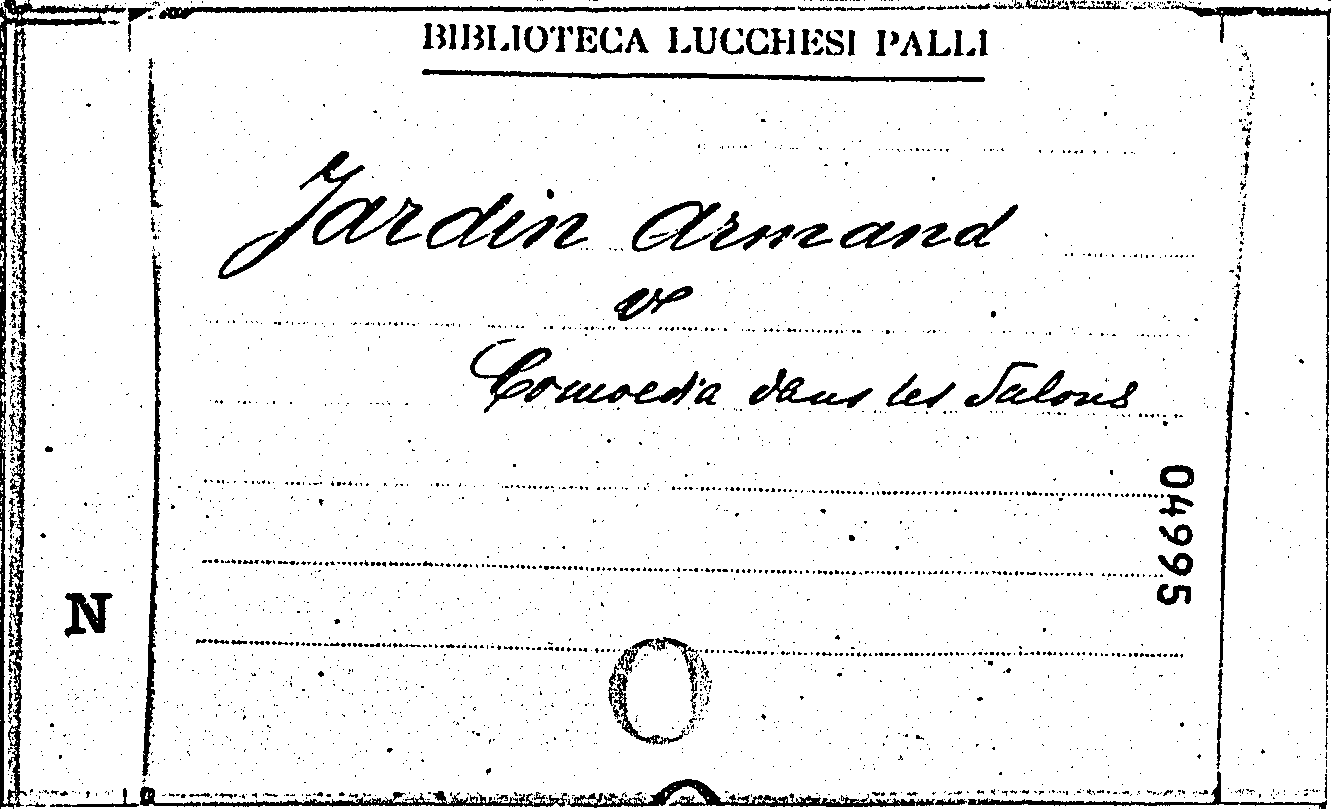 BIBLIOTECA LUCCHESI PALLI
Jardin Armand
ve
Comoedia dans les Salons
04995
N